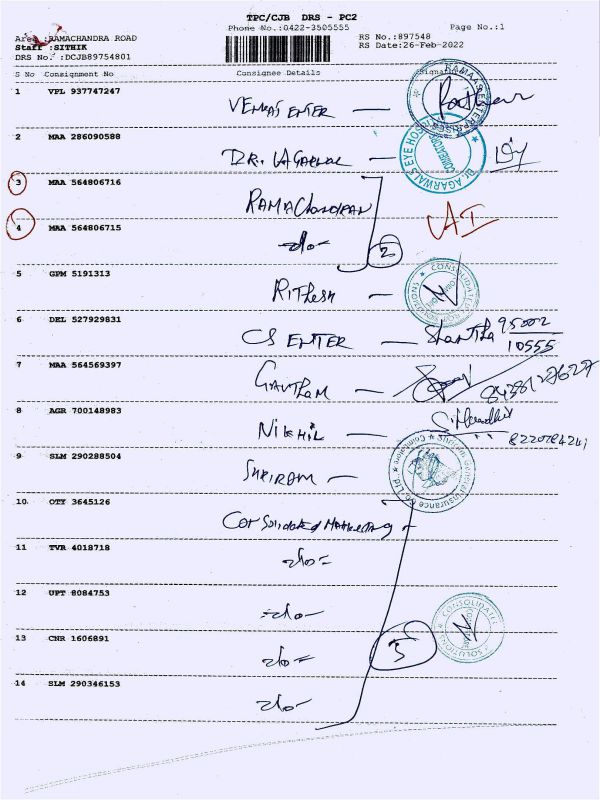 TPC/CJB DRS - PC2
Phone No.:0422-3505555 Page No.:1
Area :RAMACHANDRA ROAD RS No.:897548
Staff :SITHIK RS Date:26-Feb-2022
DRS No. :DCJB89754801
S No Consignment No Consignee Details Signature
1 VPL 937747247 VENKAS ENTER —
RAMAAS ENTERPRISES
2 MAA 286090588 DR. AGARWAL —
Dr. AGARWALS EYE HOSPITAL
COIMBATORE
3 MAA 564806716 RAMACHANDRAN
4 MAA 564806715 -do- 2
5 GPM 5191313 RITHESH —
CONSOLIDATED SOLUTIONS
6 DEL 527929831 CS ENTER — Shantha 95002
10555
7 MAA 564569397 GAUTHAM —
8 AGR 700148983 NIKHIL —
9 SLM 290288504 SHRIRAM —
General Insurance Co. Ltd.
10 OTY 3645126 Consolidated Marketing -
11 TVR 4018718 -do-
12 UPT 8084753 -do-
CONSOLIDATED SOLUTIONS
13 CNR 1606891 -do- 5
14 SLM 290346153 -do-